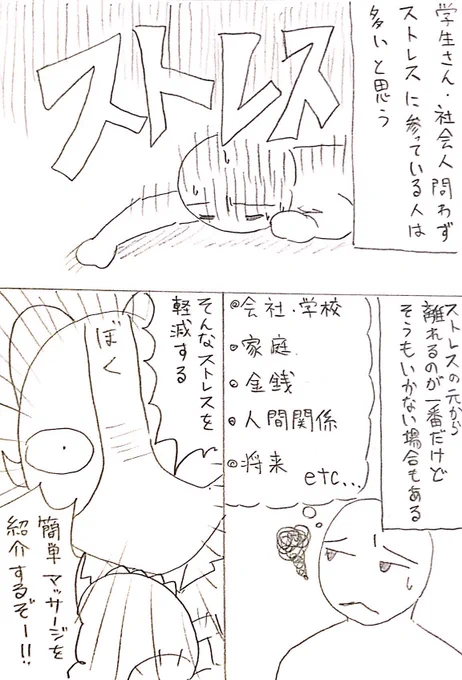 学生さん・社会人問わず
ストレスに参っている人は
多いと思う
ストレス
ストレスの元から
離れるのが一番だけど
そうもいかない場合もある
会社・学校
家庭
金銭
人間関係
将来
etc...
そんなストレスを
軽減する
ぼく
簡単マッサージを
紹介するぞー!!